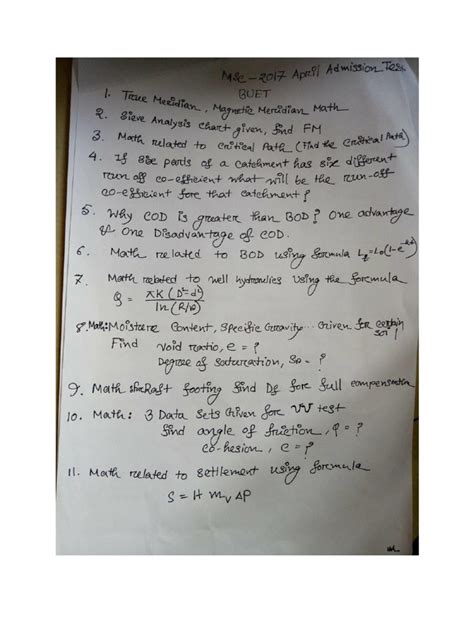 MSc - 2017 April Admission Test
BUET
1. True Meridian, Magnetic Meridian Math
2. Sieve Analysis chart given, find FM
3. Math related to critical Path (Find the Critical Path)
4. If six parts of a catchment has six different
run off co-efficient what will be the run-off
co-efficient fore that catchment?
5. Why COD is greater than BOD? One advantage
& One Disadvantage of COD.
6. Math related to BOD using formula Lt=Lo(1-e^-kt)
7. Math related to well hydraulics using the formula
Q = πK(D²-d²)
ln(R/r)
8. Math: Moisture Content, Specific Gravity... Given for certain
soil
Find void ratio, e = ?
Degree of saturation, Sr = ?
9. Math for Raft footing find Df for full compensation
10. Math: 3 Data Sets Given for UU test
find angle of friction, φ = ?
co-hesion, c = ?
11. Math related to settlement using formula
S = H mv ΔP